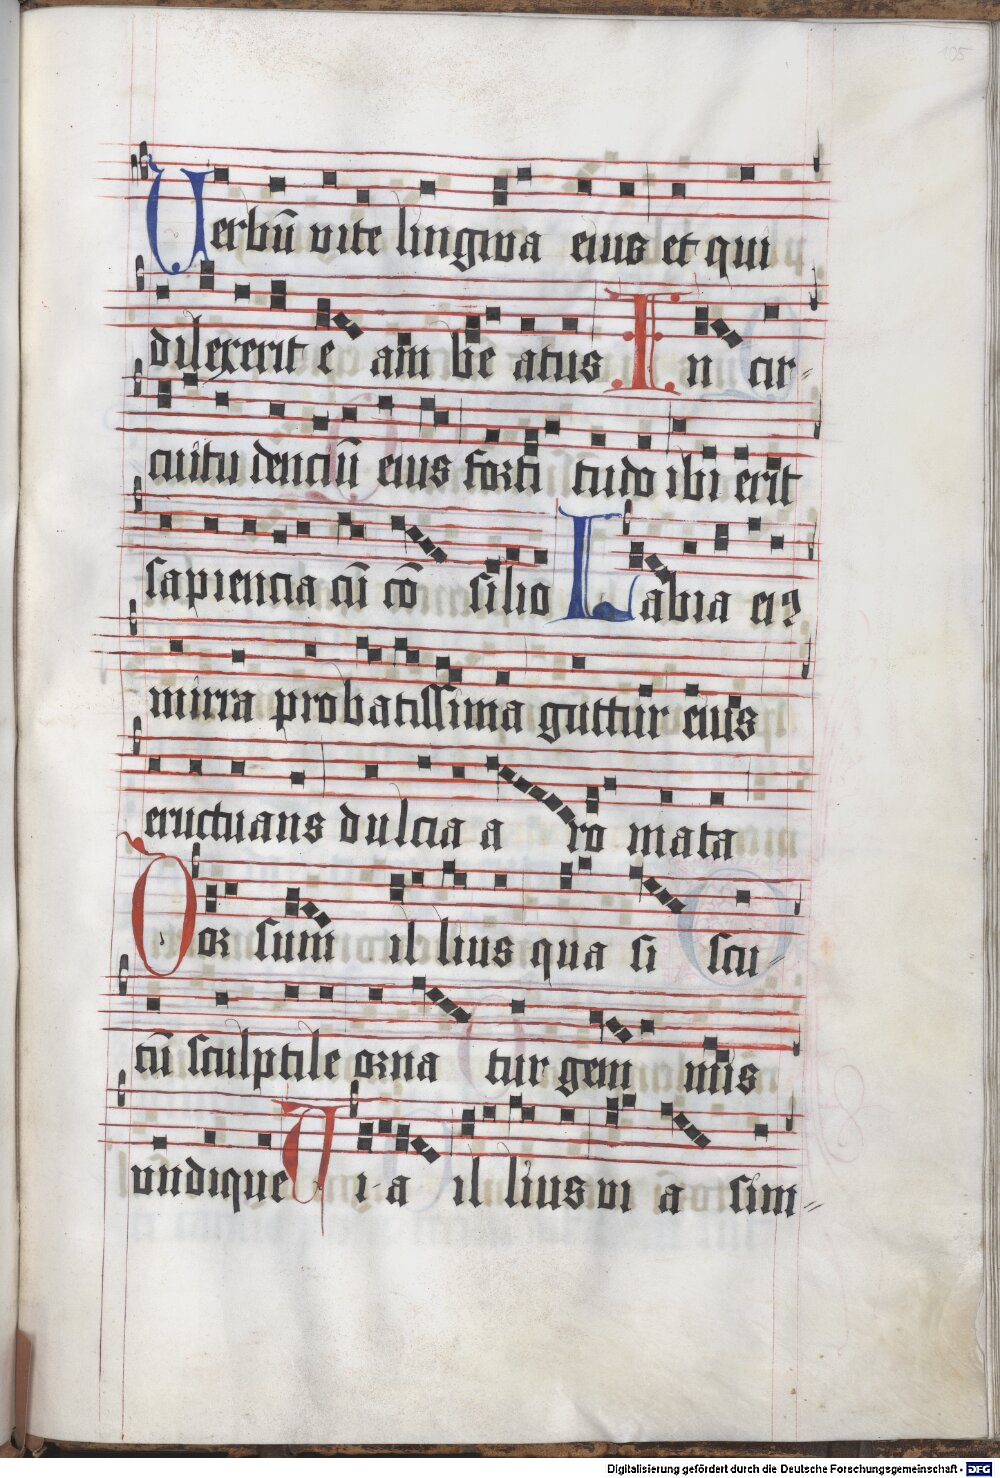 105
Uerbū vite lingwa eius et qui
dilexerit e am be atus In cir-
cuitu denciū eius forti tudo ibi erit
sapiencia cū cō silio Labia eiꝰ
mirra probatissima guttur eius
eructuans dulcia a ro mata
Dor sum il lius qua si scu-
tū sculptile orna tur gem mis
vndique Vi a il lius vi a sim-
Digitalisierung gefördert durch die Deutsche Forschungsgemeinschaft - DFG